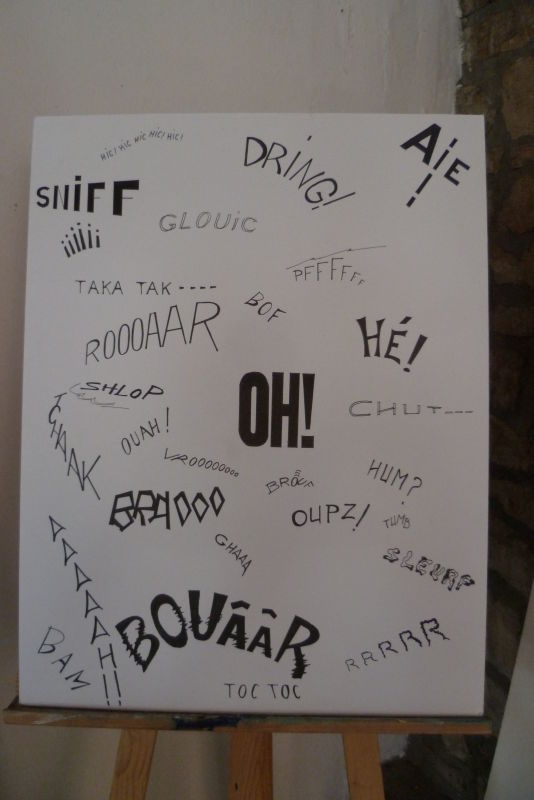 HIC! HIC HIC HIC! HIC!
DRING!
AïE!
SNIFF
GLOUIC
iiiiiii
PFFFFFFF
TAKA TAK ----
BOF
ROOOAAR
HÉ!
OH!
SHLOP
CHUT---
TCHAAK
OUAH!
VROOOOOOOO
HUM?
OUPZ!
TUMB
GHAAA
SLEURP
AAAAAAH!!
BOUÂÂR
RRRRR
BAM
TOC TOC